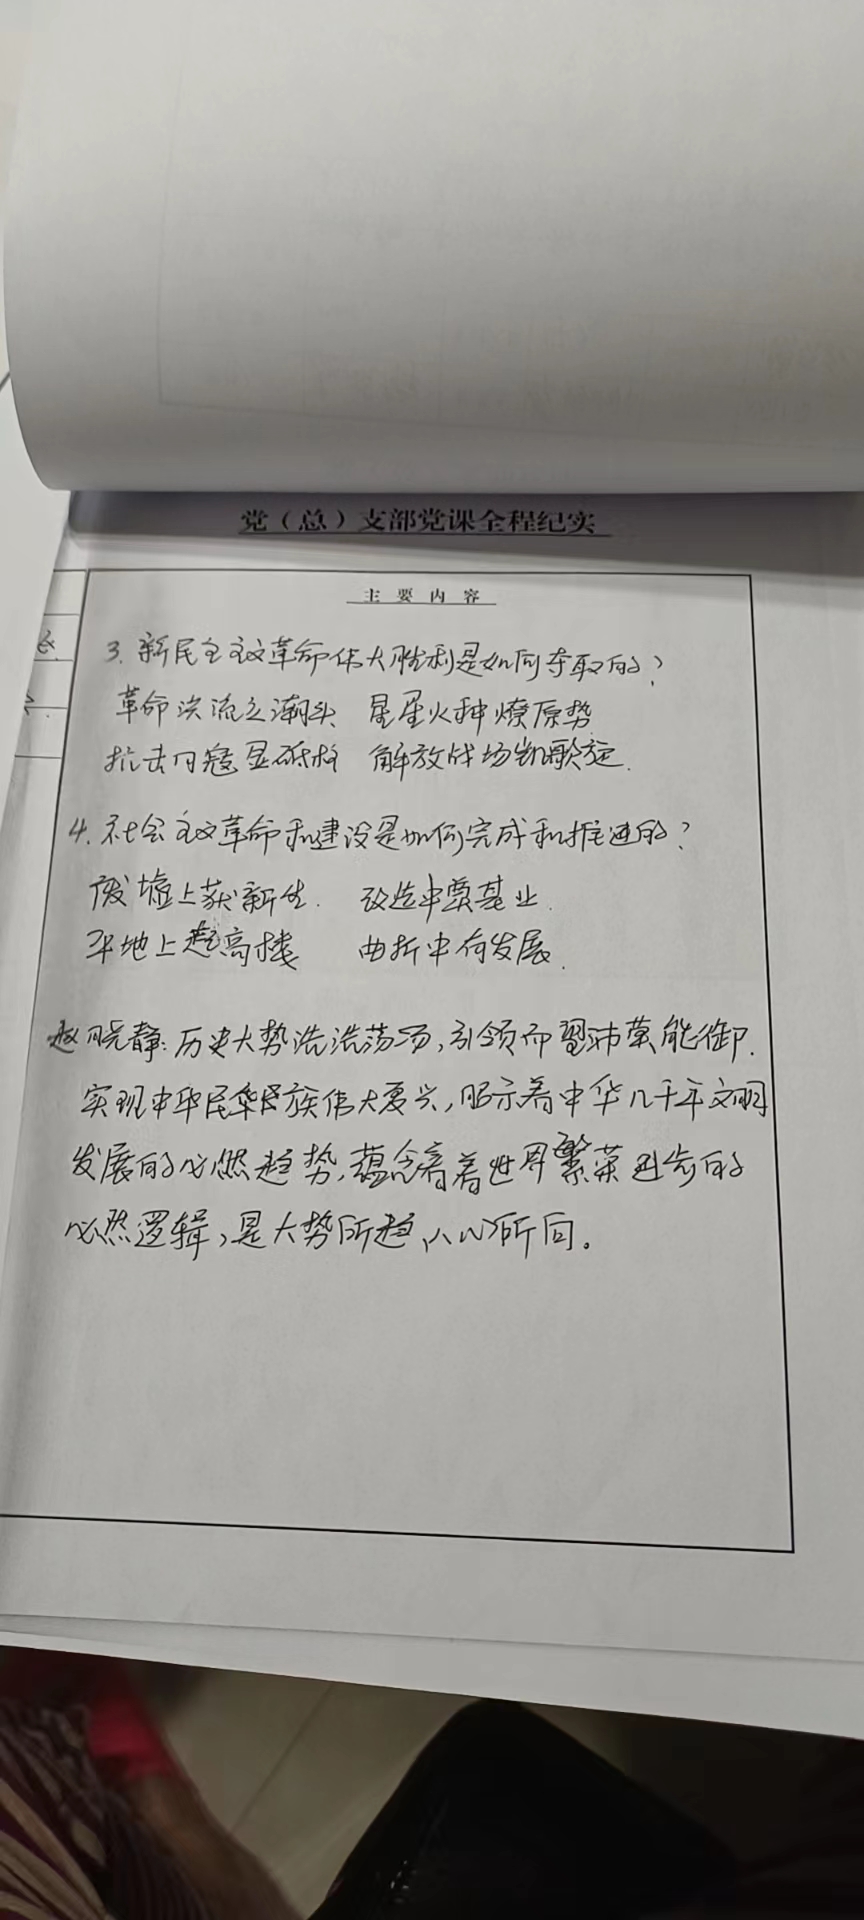 党（总）支部党课全程纪实
主要内容
3. 新民主主义革命伟大胜利是如何夺取的？
革命洪流立潮头 星星火种燎原势
抗击日寇显砥柱 解放战场凯歌旋.
4. 社会主义革命和建设是如何完成和推进的？
废墟上获新生. 改造中奠基业.
平地上起高楼 曲折中有发展.
赵晓静：历史大势浩浩荡荡，引领而望沛莫能御.
实现中华民族伟大复兴，昭示着中华几千年文明
发展的必然趋势，蕴含着着世界繁荣进步的
必然逻辑，是大势所趋、人心所向。